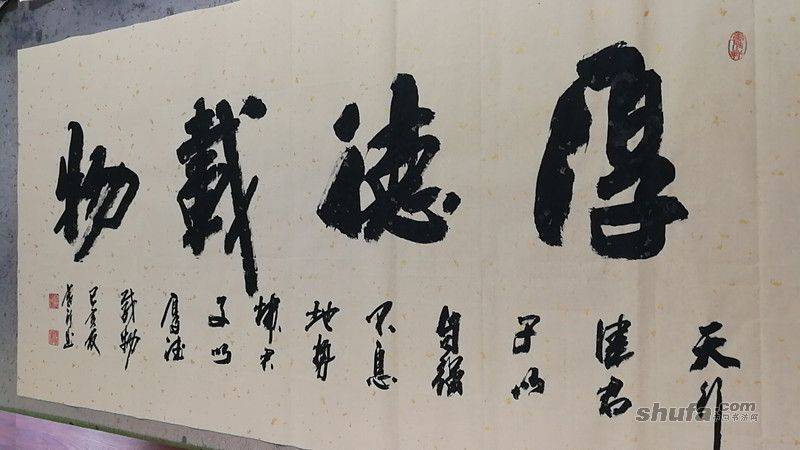 厚德載物
天行
健君
子以
自強
不息
地势
坤君
子以
厚德
載物
己亥
shufa.com
中国书法网